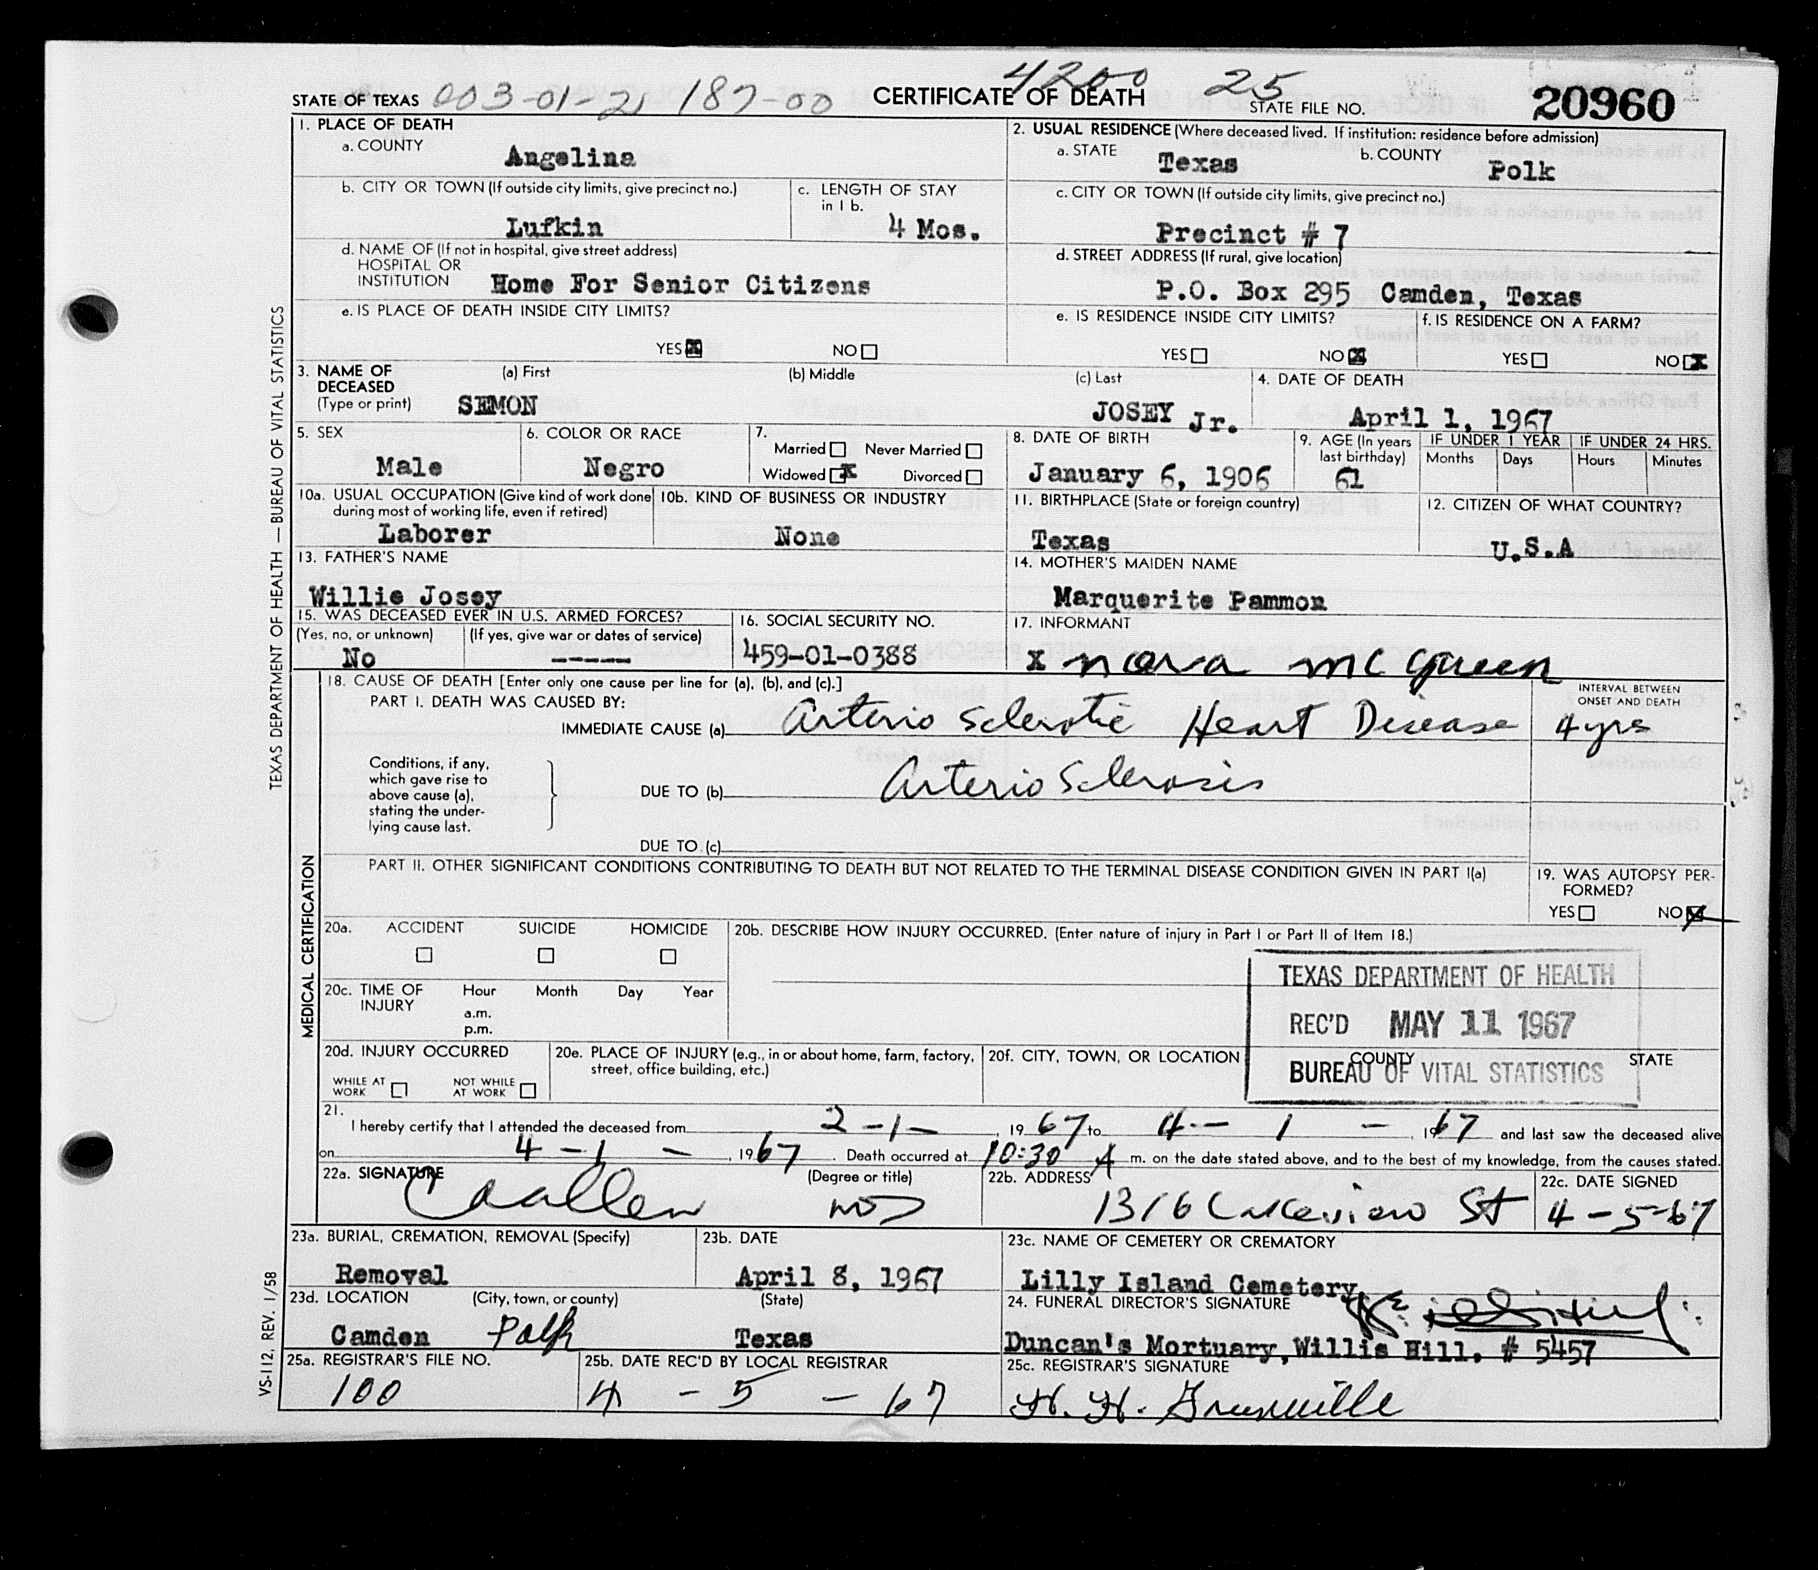 4200 25
STATE OF TEXAS 003-01-21 187-00 CERTIFICATE OF DEATH STATE FILE NO. 20960
1. PLACE OF DEATH
a. COUNTY Angelina
2. USUAL RESIDENCE (Where deceased lived. If institution: residence before admission)
a. STATE Texas b. COUNTY Polk
b. CITY OR TOWN (If outside city limits, give precinct no.) Lufkin
c. LENGTH OF STAY in 1 b. 4 Mos.
c. CITY OR TOWN (If outside city limits, give precinct no.) Precinct # 7
d. NAME OF (If not in hospital, give street address)
HOSPITAL OR
INSTITUTION Home For Senior Citizens
d. STREET ADDRESS (If rural, give location)
P.O. Box 295 Camden, Texas
e. IS PLACE OF DEATH INSIDE CITY LIMITS?
YES X NO
e. IS RESIDENCE INSIDE CITY LIMITS?
YES NO X
f. IS RESIDENCE ON A FARM?
YES NO X
3. NAME OF DECEASED (Type or print) (a) First (b) Middle (c) Last
SEMON JOSEY Jr.
4. DATE OF DEATH
April 1, 1967
5. SEX
Male
6. COLOR OR RACE
Negro
7. Married Never Married
Widowed X Divorced
8. DATE OF BIRTH
January 6, 1906
9. AGE (In years last birthday)
61
IF UNDER 1 YEAR IF UNDER 24 HRS.
Months Days Hours Minutes
10a. USUAL OCCUPATION (Give kind of work done during most of working life, even if retired)
Laborer
10b. KIND OF BUSINESS OR INDUSTRY
None
11. BIRTHPLACE (State or foreign country)
Texas
12. CITIZEN OF WHAT COUNTRY?
U.S.A
13. FATHER'S NAME
Willie Josey
14. MOTHER'S MAIDEN NAME
Marquerite Pammon
15. WAS DECEASED EVER IN U.S. ARMED FORCES?
(Yes, no, or unknown) (If yes, give war or dates of service)
No -----
16. SOCIAL SECURITY NO.
459-01-0388
17. INFORMANT
x nora mc Queen
18. CAUSE OF DEATH [Enter only one cause per line for (a), (b), and (c).]
INTERVAL BETWEEN ONSET AND DEATH
PART I. DEATH WAS CAUSED BY:
IMMEDIATE CAUSE (a) Arterio Sclerotic Heart Disease 4 yrs
Conditions, if any,
which gave rise to
above cause (a),
stating the under-
lying cause last.
DUE TO (b) Arterio Sclerosis
DUE TO (c)
PART II. OTHER SIGNIFICANT CONDITIONS CONTRIBUTING TO DEATH BUT NOT RELATED TO THE TERMINAL DISEASE CONDITION GIVEN IN PART I(a)
19. WAS AUTOPSY PER-
FORMED?
YES NO X
20a. ACCIDENT SUICIDE HOMICIDE
20b. DESCRIBE HOW INJURY OCCURRED. (Enter nature of injury in Part I or Part II of Item 18.)
20c. TIME OF INJURY Hour Month Day Year
a.m.
p.m.
TEXAS DEPARTMENT OF HEALTH
REC'D MAY 11 1967
BUREAU OF VITAL STATISTICS
20d. INJURY OCCURRED
WHILE AT WORK NOT WHILE AT WORK
20e. PLACE OF INJURY (e.g., in or about home, farm, factory,
street, office building, etc.)
20f. CITY, TOWN, OR LOCATION COUNTY STATE
21.
I hereby certify that I attended the deceased from 2-1-, 1967 to 4-1-, 1967 and last saw the deceased alive
on 4-1-, 1967. Death occurred at 10:30 A m. on the date stated above, and to the best of my knowledge, from the causes stated.
22a. SIGNATURE (Degree or title)
MD
22b. ADDRESS
1316 Lakeview St
22c. DATE SIGNED
4-5-67
23a. BURIAL, CREMATION, REMOVAL (Specify)
Removal
23b. DATE
April 8, 1967
23c. NAME OF CEMETERY OR CREMATORY
Lilly Island Cemetery
23d. LOCATION (City, town, or county) (State)
Camden Polk Texas
24. FUNERAL DIRECTOR'S SIGNATURE
Duncan's Mortuary, Willis Hill. # 5457
25a. REGISTRAR'S FILE NO.
100
25b. DATE REC'D BY LOCAL REGISTRAR
4-5-67
25c. REGISTRAR'S SIGNATURE
TEXAS DEPARTMENT OF HEALTH — BUREAU OF VITAL STATISTICS
MEDICAL CERTIFICATION
VS-112, REV. 1/58